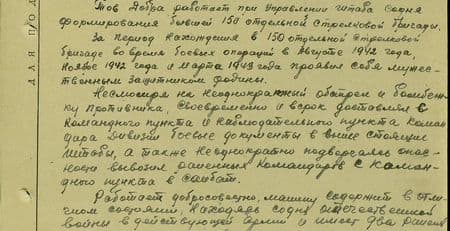 Тов Добра работает при управлении штаба со дня
формирования бывшей 150 отдельной стрелковой бригады.
За период нахождения в 150 отдельной стрелковой
бригаде во время боевых операций в Августе 1942 года,
Ноябре 1942 года и Марта 1943 года проявил себя мужес-
твенным защитником родины.
Несмотря на неоднократный обстрел и бомбеж-
ку противника, своевременно и в срок доставлял с
командного пункта и наблюдательного пункта Коман-
дира дивизии боевые документы в выше стоящие
штабы, а также неоднократно подвергаясь опас-
ности вывозил раненных командиров с коман-
дного пункта в санбат.
Работает добросовестно, машину содержит в отли-
чном состоянии, находясь со дня отечественной
войны в действующей армии и имеет два ранения
для про